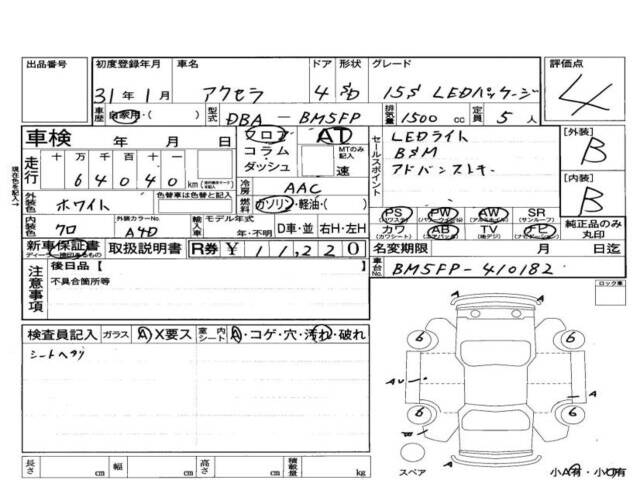 出品番号
初度登録年月 車名 ドア 形状 グレード 評価点
31年 1月 アクセラ 4 SD 15S LEDパッケージ 4
車歴 自家用・( ) 型式 DBA - BM5FP 排気量 1500 cc 定員 5 人
車検 年 月 日 フロア コラム ダッシュ AT MTのみ記入 速
走行 十 万 千 百 十 一
6 4 0 4 0 km
セールスポイント
LEDライト
BSM
アドバンストキー
外装色 ホワイト 色替車は色替と記入
冷房 AAC
燃料 ガソリン・軽油・( )
内装色 クロ 外装カラーNo. A4D
輸入車 モデル年式 年・不明 D車・並 右H・左H
PS PW AW SR
(パワステ) (パワーウィンドウ) (アルミホイール) (サンルーフ)
カワ AB TV ナビ
(カワシート) (エアバッグ) (地デジ) (ナビゲーション)
純正品のみ丸印
[外装] B
[内装] B
新車保証書 取扱説明書 R券 ¥ 11,220
名変期限 月 日迄
車台No. BM5FP-410182
現在色を記入→
注意事項
後日品【
不具合箇所等
ロック車
検査員記入 ガラス A X要ス 室内シート A・コゲ・穴・汚れ・破れ
シートヘタリ
6 6
AU
A
6 6
A
W
スペア
小A有・小U有
長さ cm 幅 cm 高さ cm 積載量 kg